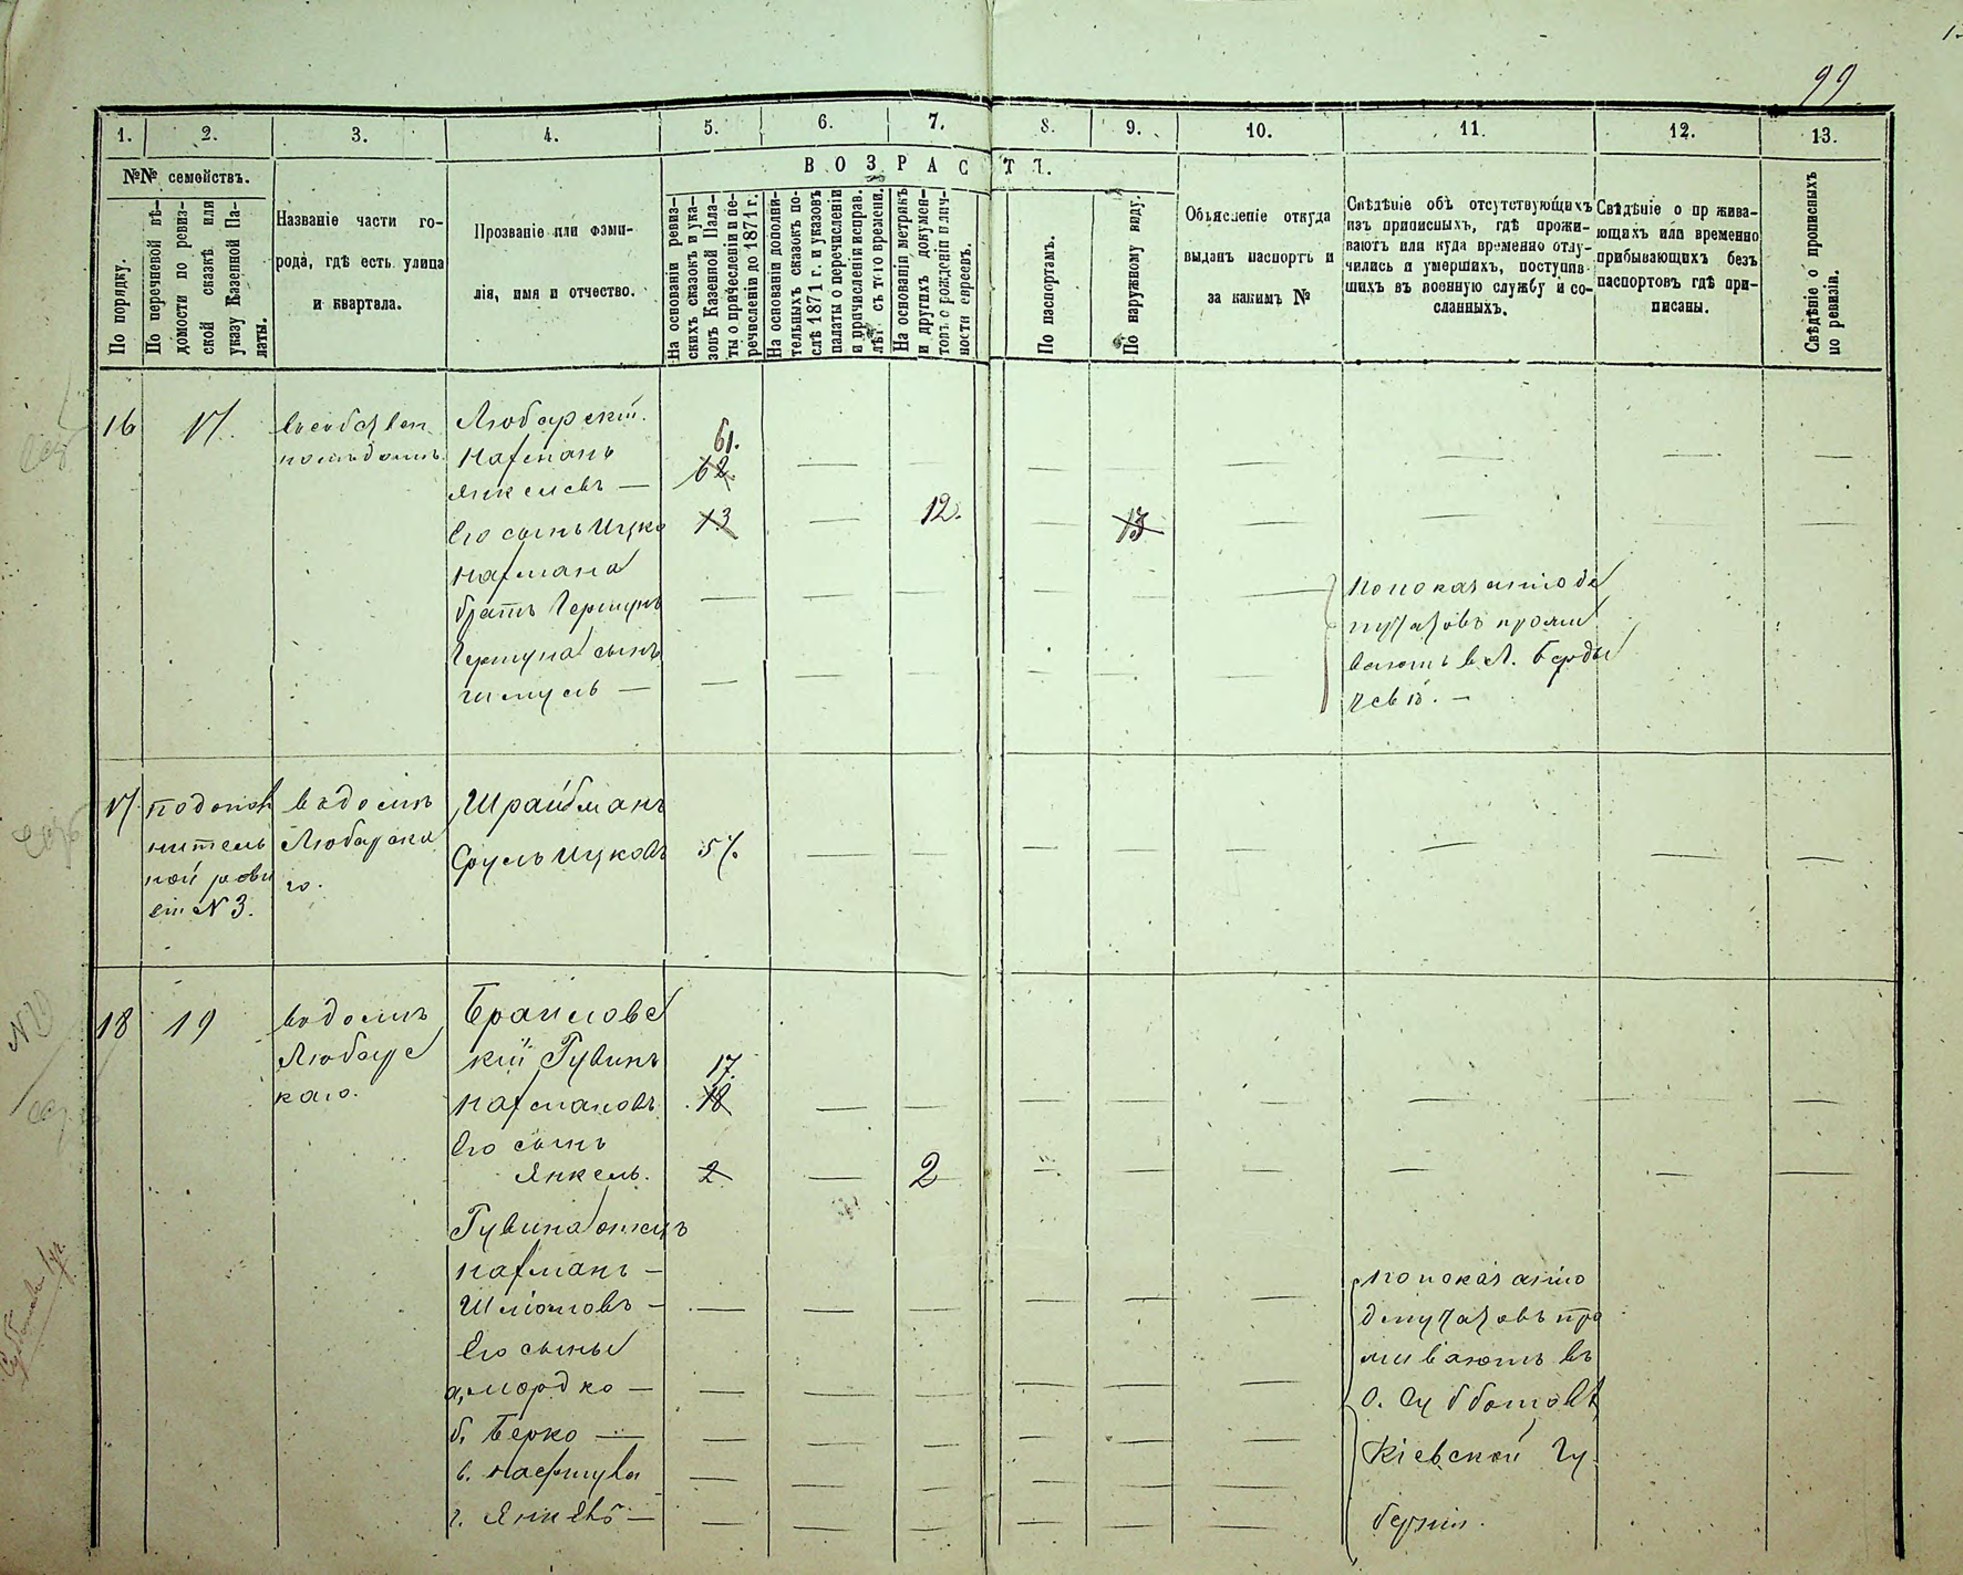 99
1. 2. 3. 4. 5. 6. 7. 8. 9. 10. 11. 12. 13.
№№ семействъ.
По порядку.
По перечневой вѣ-
домости по ревиз-
ской сказкѣ или
указу Казенной Па-
латы.
Названіе части го-
рода, гдѣ есть улица
и квартала.
Прозваніе или фами-
лія, имя и отчество.
ВОЗРАСТЪ.
На основаніи ревиз-
скихъ сказокъ и ука-
зовъ Казенной Пала-
ты о причисленіи и пе-
речисленіи до 1871 г.
На основаніи дополни-
тельныхъ сказокъ по-
слѣ 1871 г. и указовъ
палаты о перечисленіи
и причисленіи исправ.
лѣт съ того времени.
На основаніи метрикъ
и другихъ докумен-
товъ о рожденіи и лич-
ности евреевъ.
По паспортамъ.
По наружному виду.
Объясненіе откуда
выданъ паспортъ и
за какимъ №
Свѣдѣніе объ отсутствующихъ
изъ приписныхъ, гдѣ прожи-
ваютъ или куда временно отлу-
чились и умершихъ, поступив-
шихъ въ военную службу и со-
сланныхъ.
Свѣдѣніе о прожива-
ющихъ или временно
прибывающихъ безъ
паспортовъ гдѣ при-
писаны.
Свѣдѣніе о прописныхъ
по ревизіи.
16 17.
номъ домѣ
Любарскій.
Нахманъ 61.
Янкелевъ — 62
Его сынъ Ицко 13 — 12. 13
Нахмана
братъ Гершунъ
Гершуна сынъ
Шмуль —
По показанію де
путатовъ прожи
ваютъ въ г. Берди
чевѣ. —
17. По допол
нитель
ной реви
зіи № 3.
въ домѣ
Любарска
го.
Шрайбманъ
Сруль Ицковъ 57.
18 19
въ домѣ
Любарс
каго.
Браиловс
кій Рувинъ 17.
Нахмановъ 18
Его сынъ
Янкель. 2 — 2
Рувина отецъ
Нахманъ —
Шліомовъ —
Его сыны
а, Мордко —
б. Берко —
в. Нафтула
г. Янкевъ —
По показанію
депутатовъ про
живаютъ въ
с. Субботовѣ
Кіевской Гу
берніи.